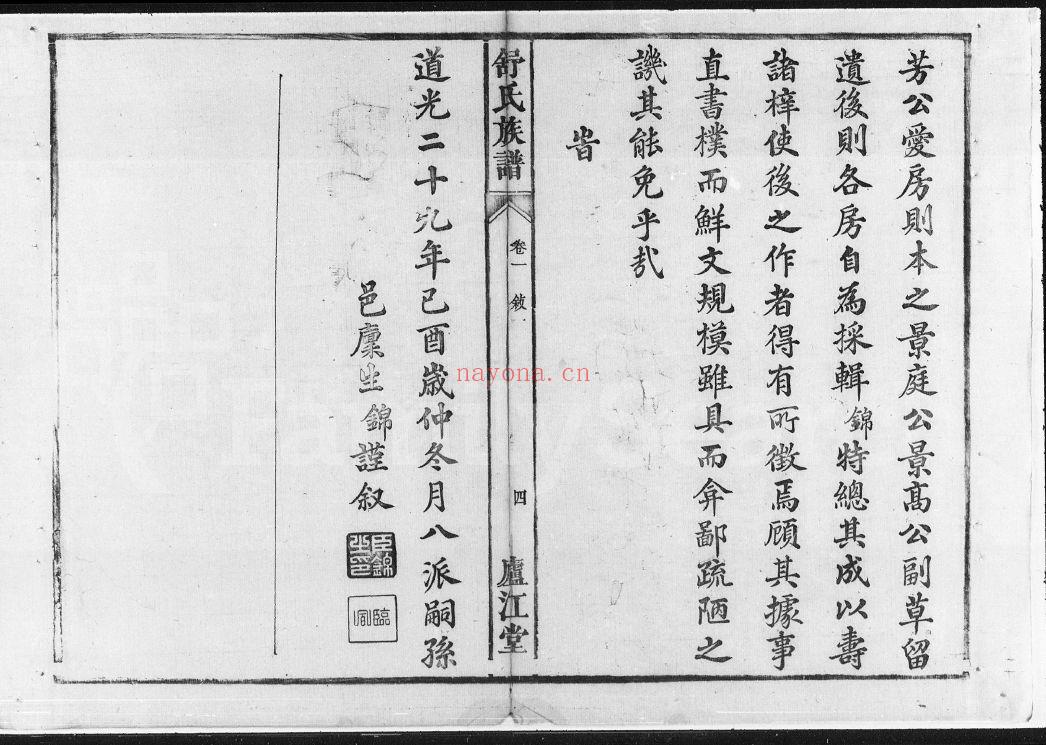 芳公愛房則本之景庭公景高公副草留
遺後則各房自為採輯錦特總其成以壽
諸梓使後之作者得有所徵焉顧其據事
直書樸而鮮文規模雖具而弇鄙疏陋之
譏其能免乎哉
旹
舒氏族譜
卷一
敘
四
廬江堂
道光二十九年已酉歲仲冬月八派嗣孫
邑廩生錦謹叙
臣錦
臨
navona.cn